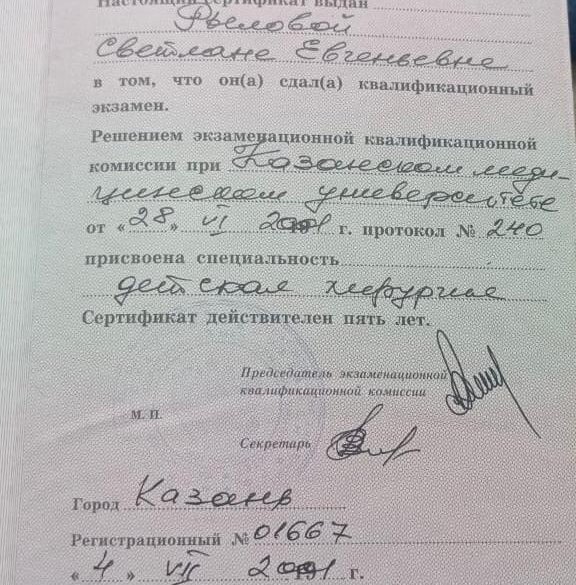 Настоящий сертификат выдан
Рыловой
Светлане Евгеньевне
в том, что он(а) сдал(а) квалификационный
экзамен.
Решением экзаменационной квалификационной
комиссии при Казанском меди-
цинском университете
от « 28 » VI 2001 г. протокол № 240
присвоена специальность
детская хирургия
Сертификат действителен пять лет.
Председатель экзаменационной
квалификационной комиссии
М. П.
Секретарь
Город Казань
Регистрационный № 01667
« 4 » VII 2001 г.